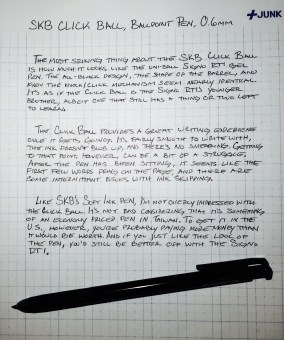 +JUNK
SKB CLICK BALL, BALLPOINT PEN, 0.6MM
THE MOST STRIKING THING ABOUT THE SKB CLICK BALL
IS HOW MUCH IT LOOKS LIKE THE UNI-BALL SIGNO RT1 GEL
PEN. THE ALL-BLACK DESIGN, THE SHAPE OF THE BARREL, AND
EVEN THE KNOCK/CLICK MECHANISM SEEM NEARLY IDENTICAL.
IT'S AS IF THE CLICK BALL IS THE SIGNO RT1'S YOUNGER
BROTHER, ALBEIT ONE THAT STILL HAS A THING OR TWO LEFT
TO LEARN.
THE CLICK BALL PROVIDES A GREAT WRITING EXPERIENCE
ONCE IT GETS GOING. IT'S FAIRLY SMOOTH TO WRITE WITH,
THE INK DOESN'T BLOB UP, AND THERE'S NO SMEARING. GETTING
TO THAT POINT, HOWEVER, CAN BE A BIT OF A STRUGGLE.
AFTER THE PEN HAS BEEN SITTING, IT SEEMS LIKE THE
FIRST FEW WORDS DRAG ON THE PAGE, AND THERE ARE
SOME INTERMITTENT ISSUES WITH INK SKIPPING.
LIKE SKB'S SOFT INK PEN, I'M NOT OVERLY IMPRESSED WITH
THE CLICK BALL. IT'S NOT BAD CONSIDERING THAT IT'S SOMETHING
OF AN ECONOMY PRICED PEN IN TAIWAN. TO GET IT IN THE
U.S., HOWEVER, YOU'RE PROBABLY PAYING MORE MONEY THAN
IT WOULD BE WORTH. AND IF YOU JUST LIKE THE LOOK OF
THE PEN, YOU'D STILL BE BETTER OFF WITH THE SIGNO
RT1.